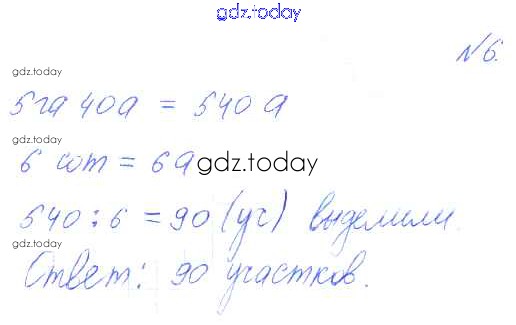 gdz.today
№6.
gdz.today
5 га 40а = 540 а
gdz.today
6 сот = 6а gdz.today
540 : 6 = 90 (уч) выделили.
gdz.today
Ответ: 90 участков.